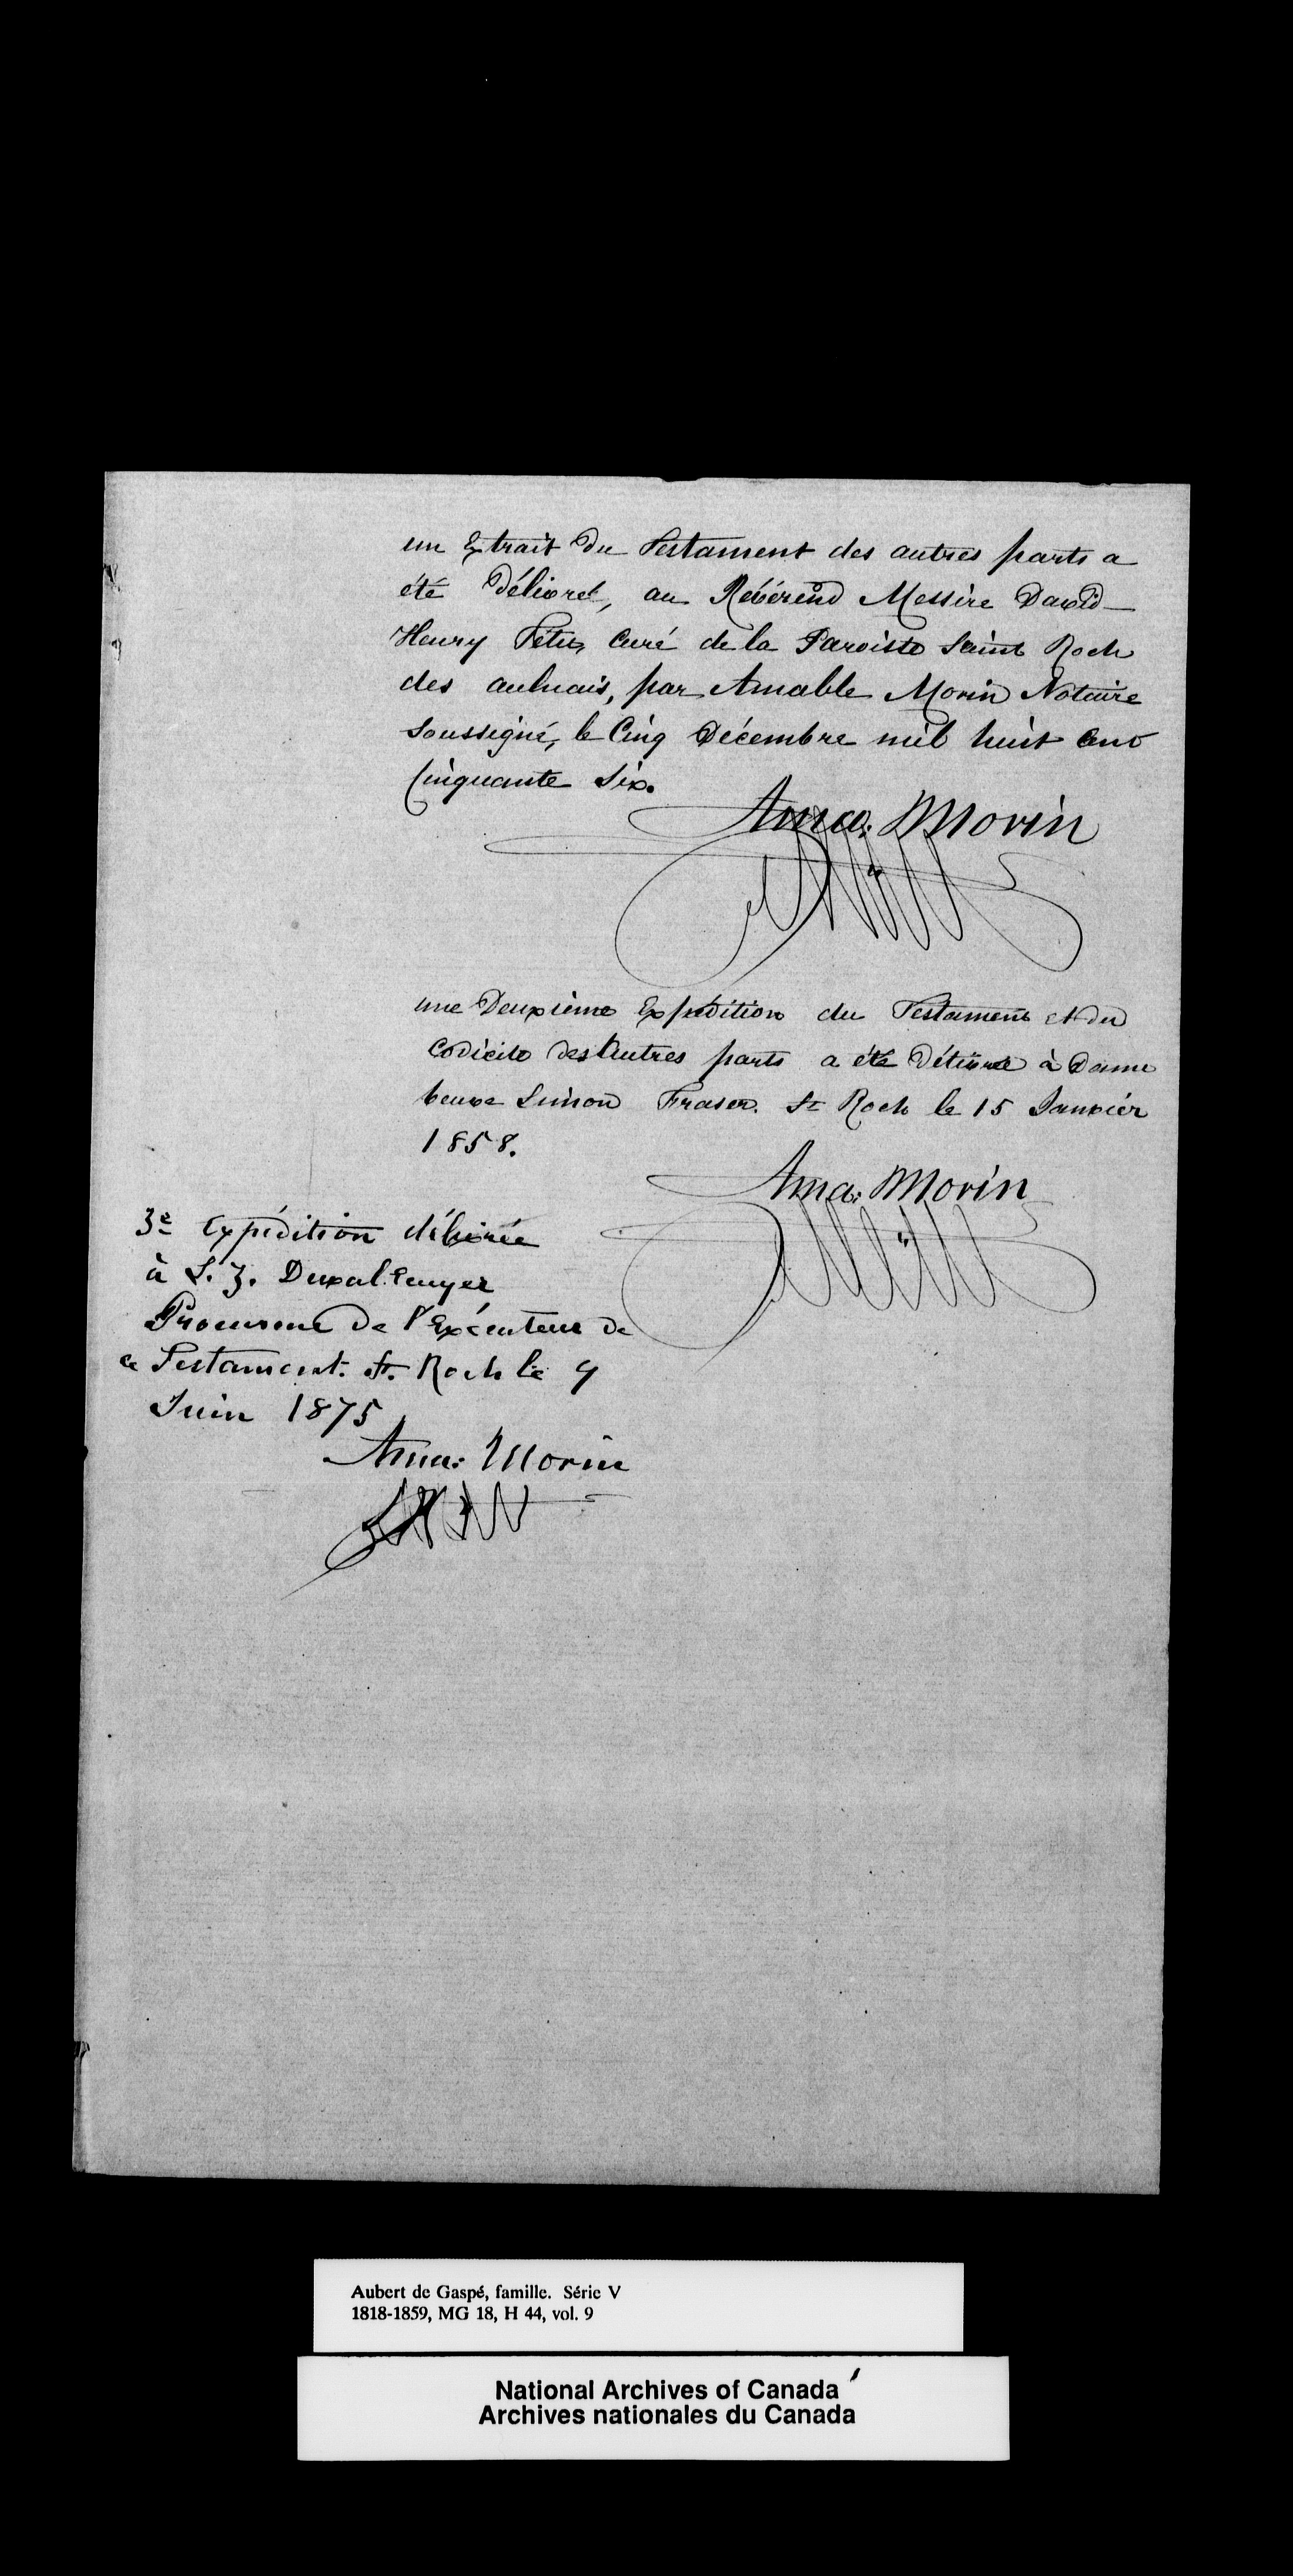 un Extrait du Testament des autres parts a
été Délivré, au Révérend Messire David
Henry Têtu, Curé de la Paroisse Saint Roch
des aulnais, par Amable Morin Notaire
soussigné, le Cinq Décembre mil huit cent
Cinquante Six.
Ama: Morin
une Deuxième Expédition du Testament et du
Codicile des Autres parts a été délivré à Dame
veuve Simon Fraser. St Roch le 15 Janvier
1858.
Ama: Morin
3e expédition délivrée
à L. Z. Duval Ecuyer
Procureur de l'Exécuteur de
ce Testament. St. Roch le 9
Juin 1875
Ama: Morin
Aubert de Gaspé, famille. Série V
1818-1859, MG 18, H 44, vol. 9
National Archives of Canada
Archives nationales du Canada